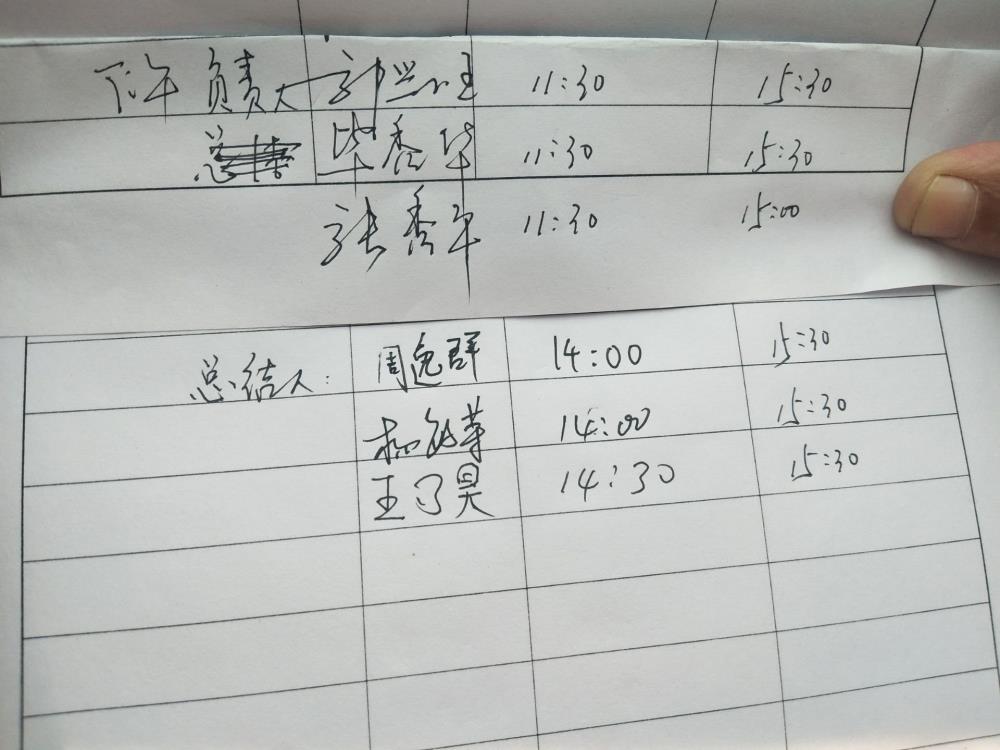 下午 负责人 计兴旺 11:30 15:30
总 毕香华 11:30 15:30
张香午 11:30 15:00
总结人: 周逸群 14:00 15:30
14:00 15:30
王了昊 14:30 15:30